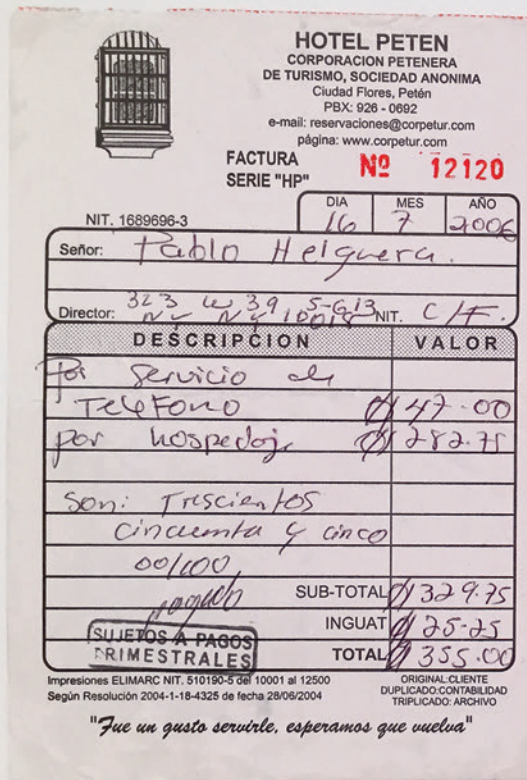 HOTEL PETEN
CORPORACION PETENERA
DE TURISMO, SOCIEDAD ANONIMA
Ciudad Flores, Petén
PBX: 926 - 0692
e-mail: reservaciones@corpetur.com
página: www.corpetur.com
FACTURA
SERIE "HP"
Nº 12120
NIT. 1689696-3
DIA MES AÑO
16 7 2006
Señor: Pablo Helguera.
Director: 323 W 39 NIT. C/F.
NY NY 10018
DESCRIPCION VALOR
Por Servicio de
Telefono Q 47.00
por hospedaje Q 282.75
Son: Trescientos
Cincuenta y cinco
00/100
pagado
SUB-TOTAL Q 329.75
INGUAT Q 25-25
TOTAL Q 355.00
SUJETOS A PAGOS
TRIMESTRALES
Impresiones ELIMARC NIT. 510190-5 del 10001 al 12500
Según Resolución 2004-1-18-4325 de fecha 28/06/2004
ORIGINAL:CLIENTE
DUPLICADO:CONTABILIDAD
TRIPLICADO: ARCHIVO
"Fue un gusto servirle, esperamos que vuelva"